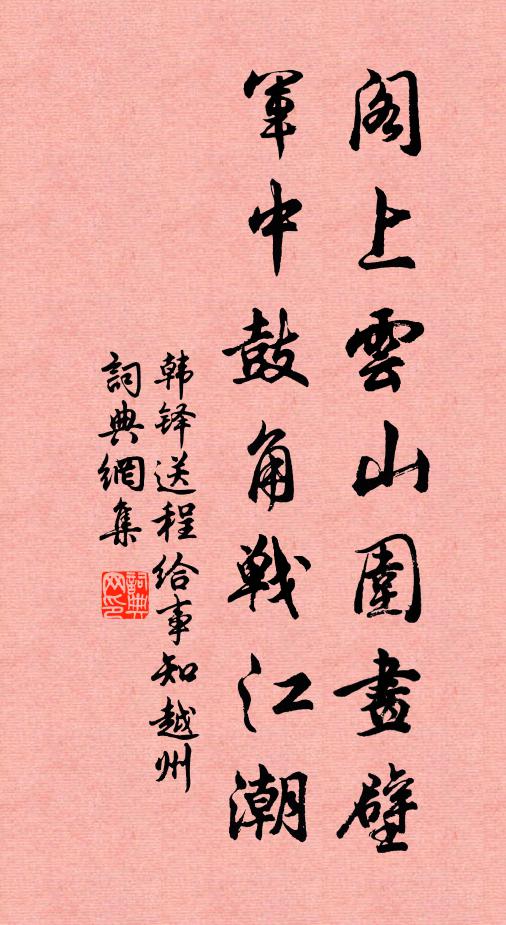 阁上雲山圍畫壁
軍中鼓角戰江潮
韩铎送程给事知越州
詞典網集
詞典
网印